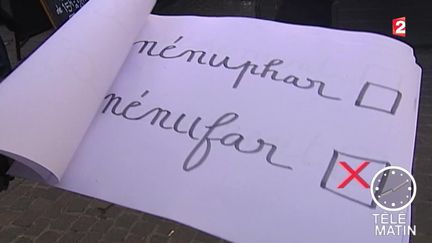 2
nénuphar
nénufar
TÉLÉ
MATIN